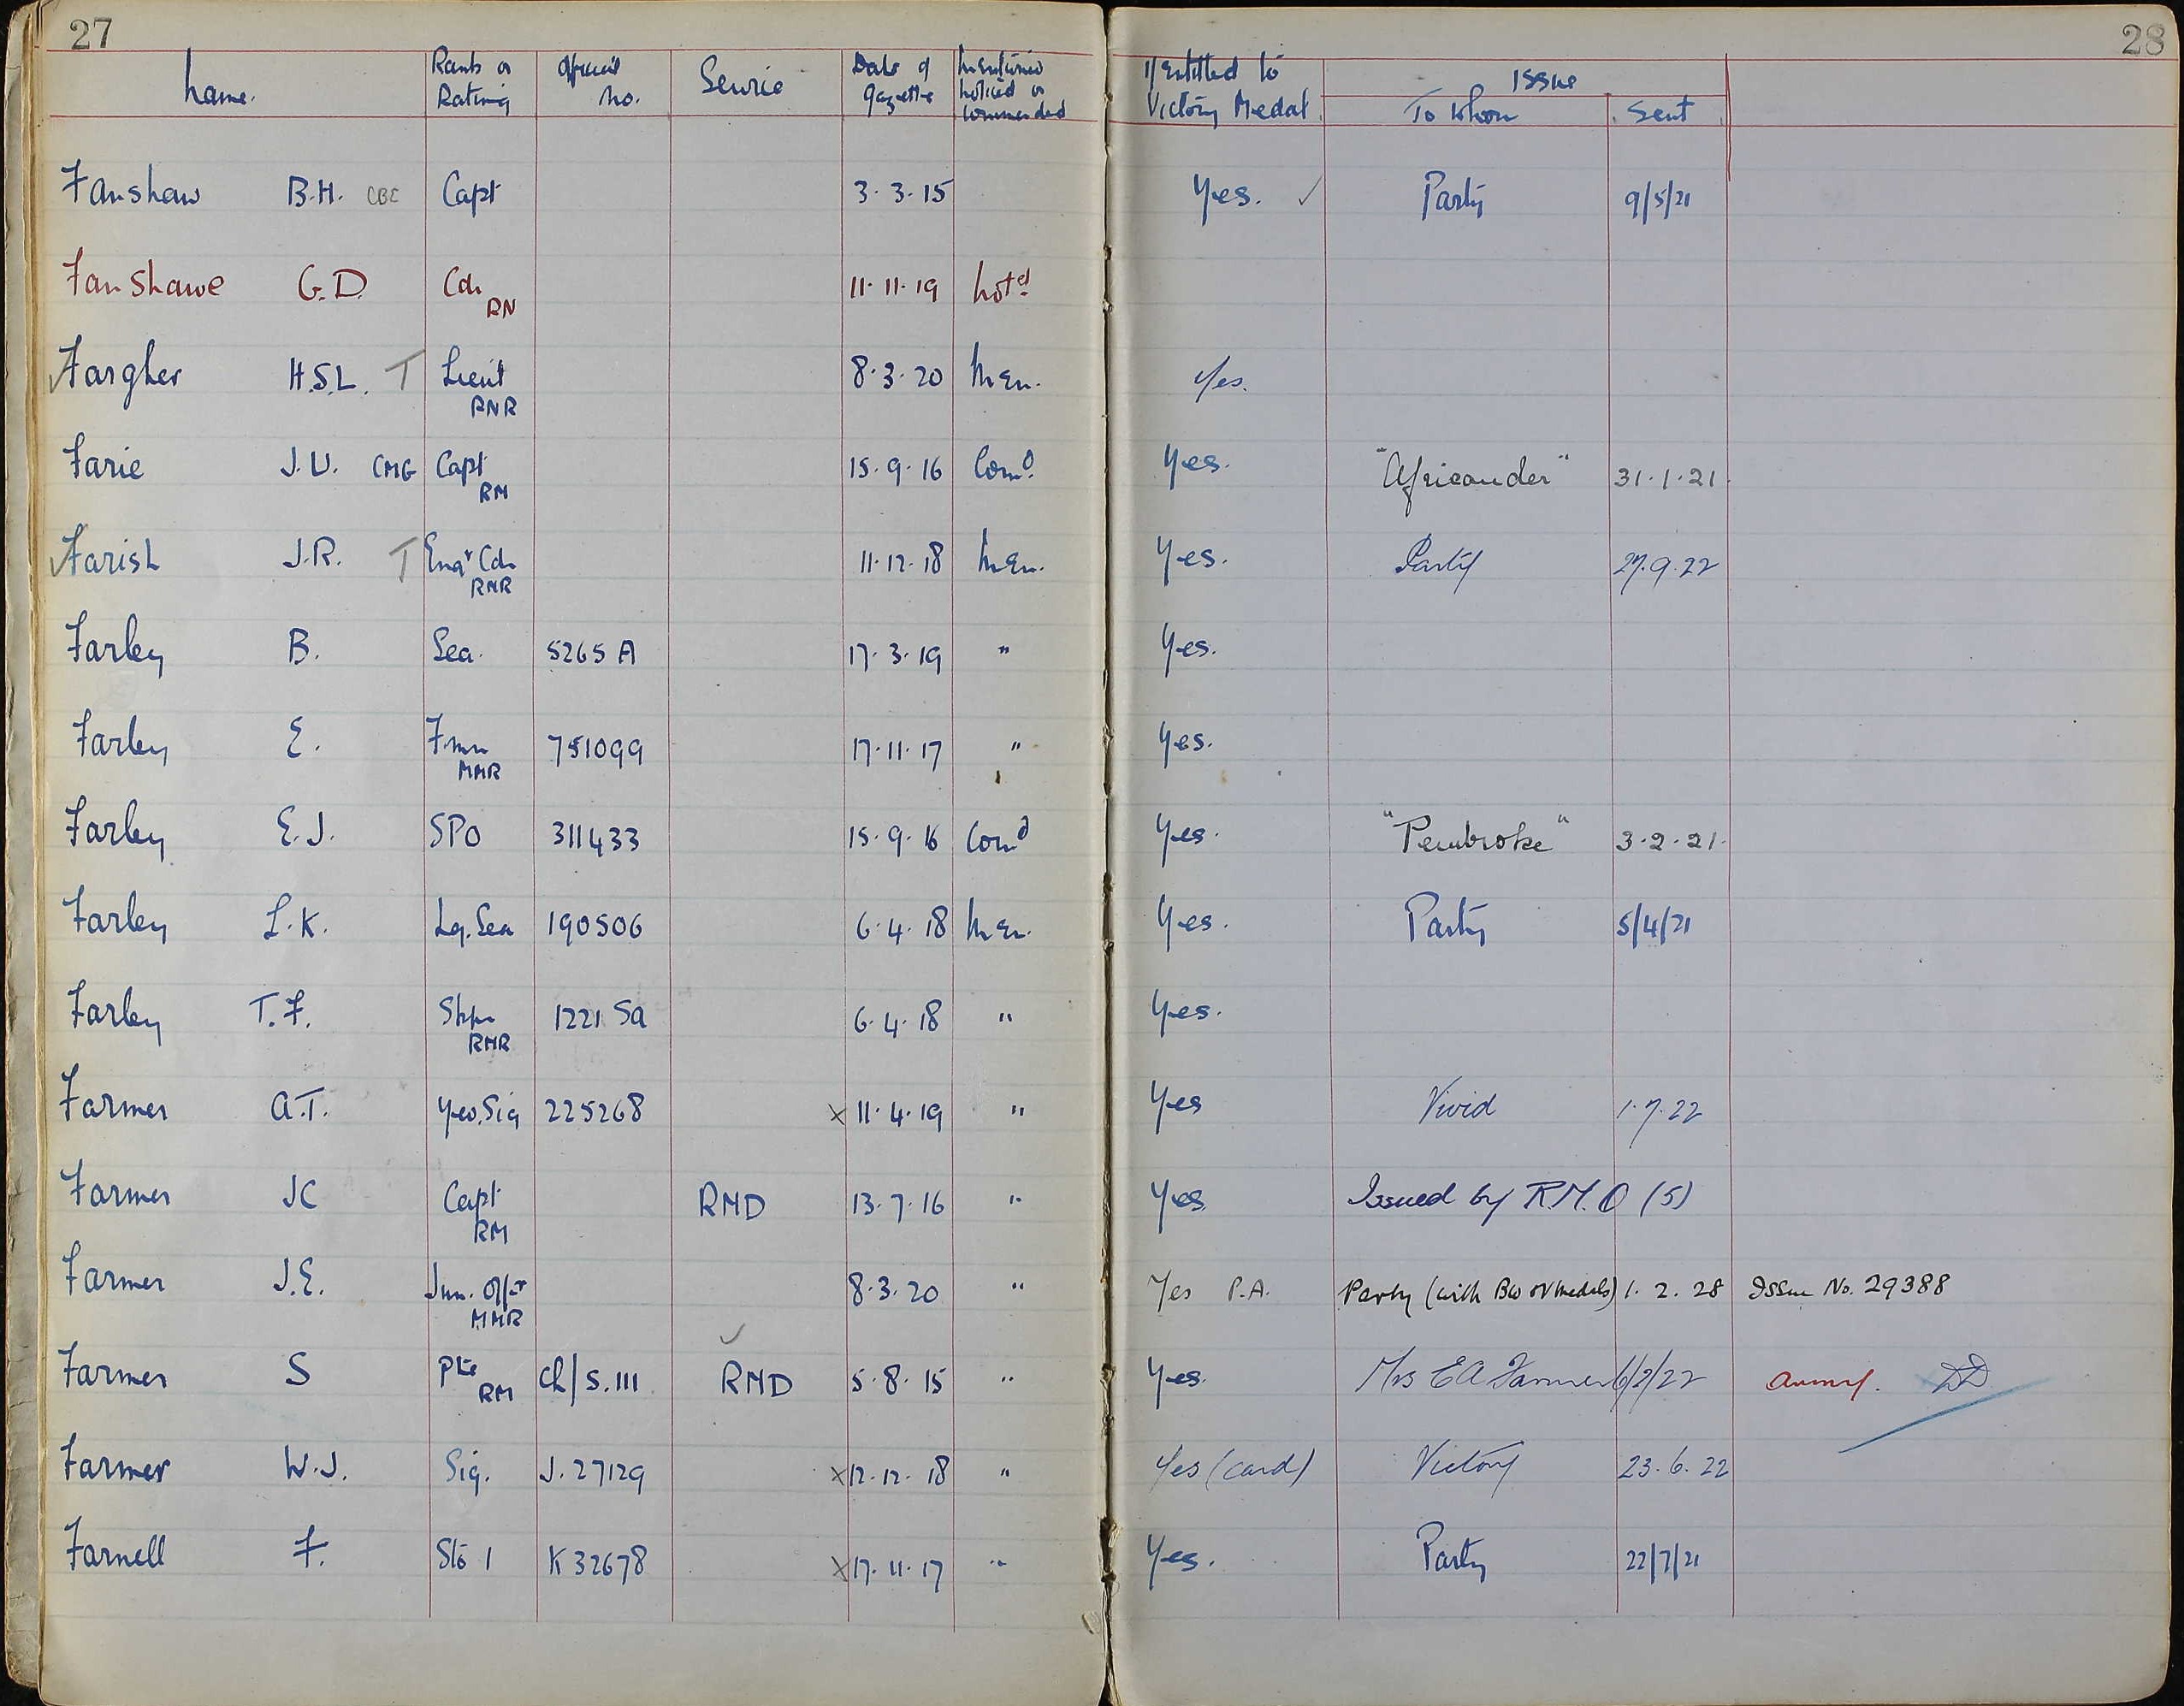 27
28
Name. Rank or Rating Official No. Service Date of Gazette Mentioned Noticed or Commended If Entitled to Victory Medal Issue To Whom Sent
Fanshaw B.H. CBE Capt 3.3.15 Yes. ✓ Party 9/5/21
Fanshawe G.D. Cdr RN 11.11.19 Notd
Fargher H.S.L. T Lieut RNR 8.3.20 Men. Yes.
Farie J.U. CMG Capt RM 15.9.16 Comd. Yes. "Africander" 31.1.21.
Farish J.R. T Engr Cdr RNR 11.12.18 Men. Yes. Party 27.9.22
Farley B. Sea. 5265 A 17.3.19 " Yes.
Farley E. Fmn MMR 751099 17.11.17 " Yes.
Farley E.J. SPO 311433 15.9.16 Comd Yes. "Pembroke" 3.2.21.
Farley L.K. Lg. Sea 190506 6.4.18 Men. Yes. Party 5/4/21
Farley T.F. RNR 1221 Sa 6.4.18 " Yes.
Farmer A.T. Yeo. Sig 225268 x 11.4.19 " Yes Vivid 1.7.22
Farmer JC Capt RM RMD 13.7.16 " Yes Issued by R.M.O (5)
Farmer J.E. Jun. Offr MMR 8.3.20 " Yes P.A. Party (with BW & V medals) 1.2.28 Issue No. 29388
Farmer S Pte RM Ch/S.111 ✓ RND 5.8.15 " Yes. Mrs E A Farmer 6/2/22 DD
Farmer W.J. Sig. J.27129 x 12.12.18 " Yes (card) Victory 23.6.22
Farnell F. Sto 1 K 32678 x 17.11.17 " Yes. Party 22/7/21